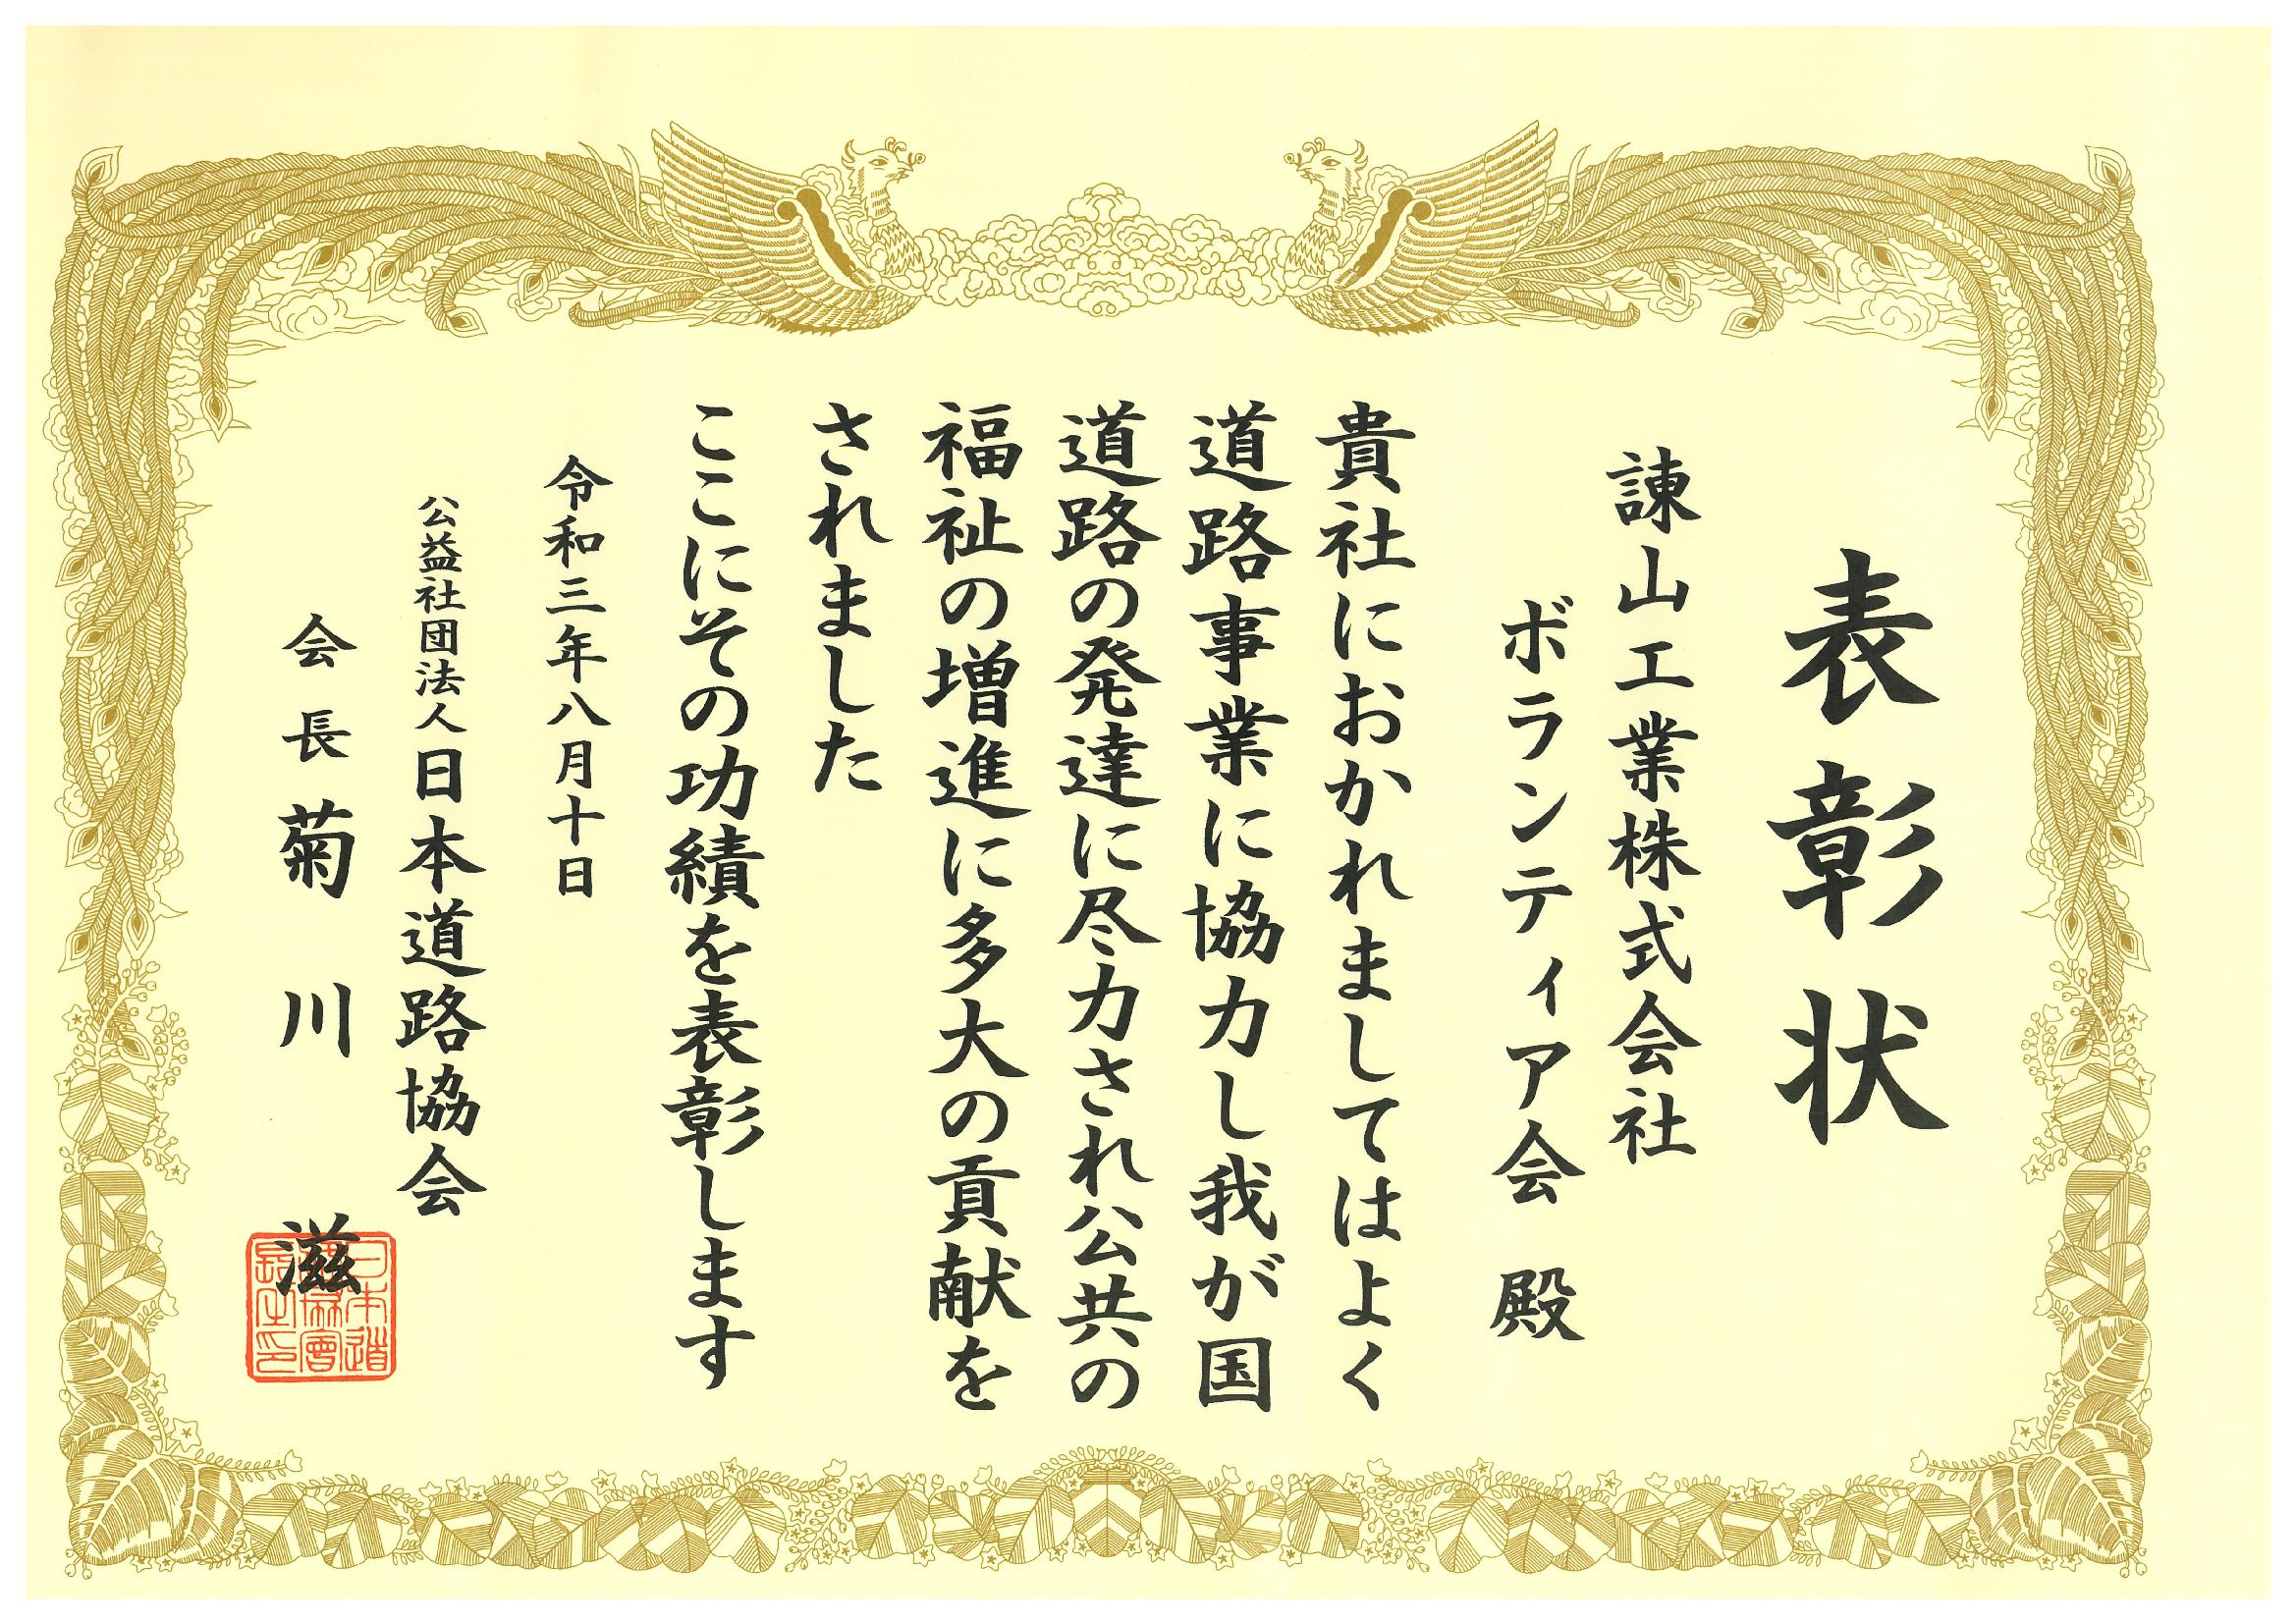 表彰状
諌山工業株式会社
ボランティア会 殿
貴社におかれましてはよく
道路事業に協力し我が国
道路の発達に尽力され公共の
福祉の増進に多大の貢献を
されました
ここにその功績を表彰します
令和三年八月十日
公益社団法人日本道路協会
会長 菊川 滋
日本道
路協會
長之印